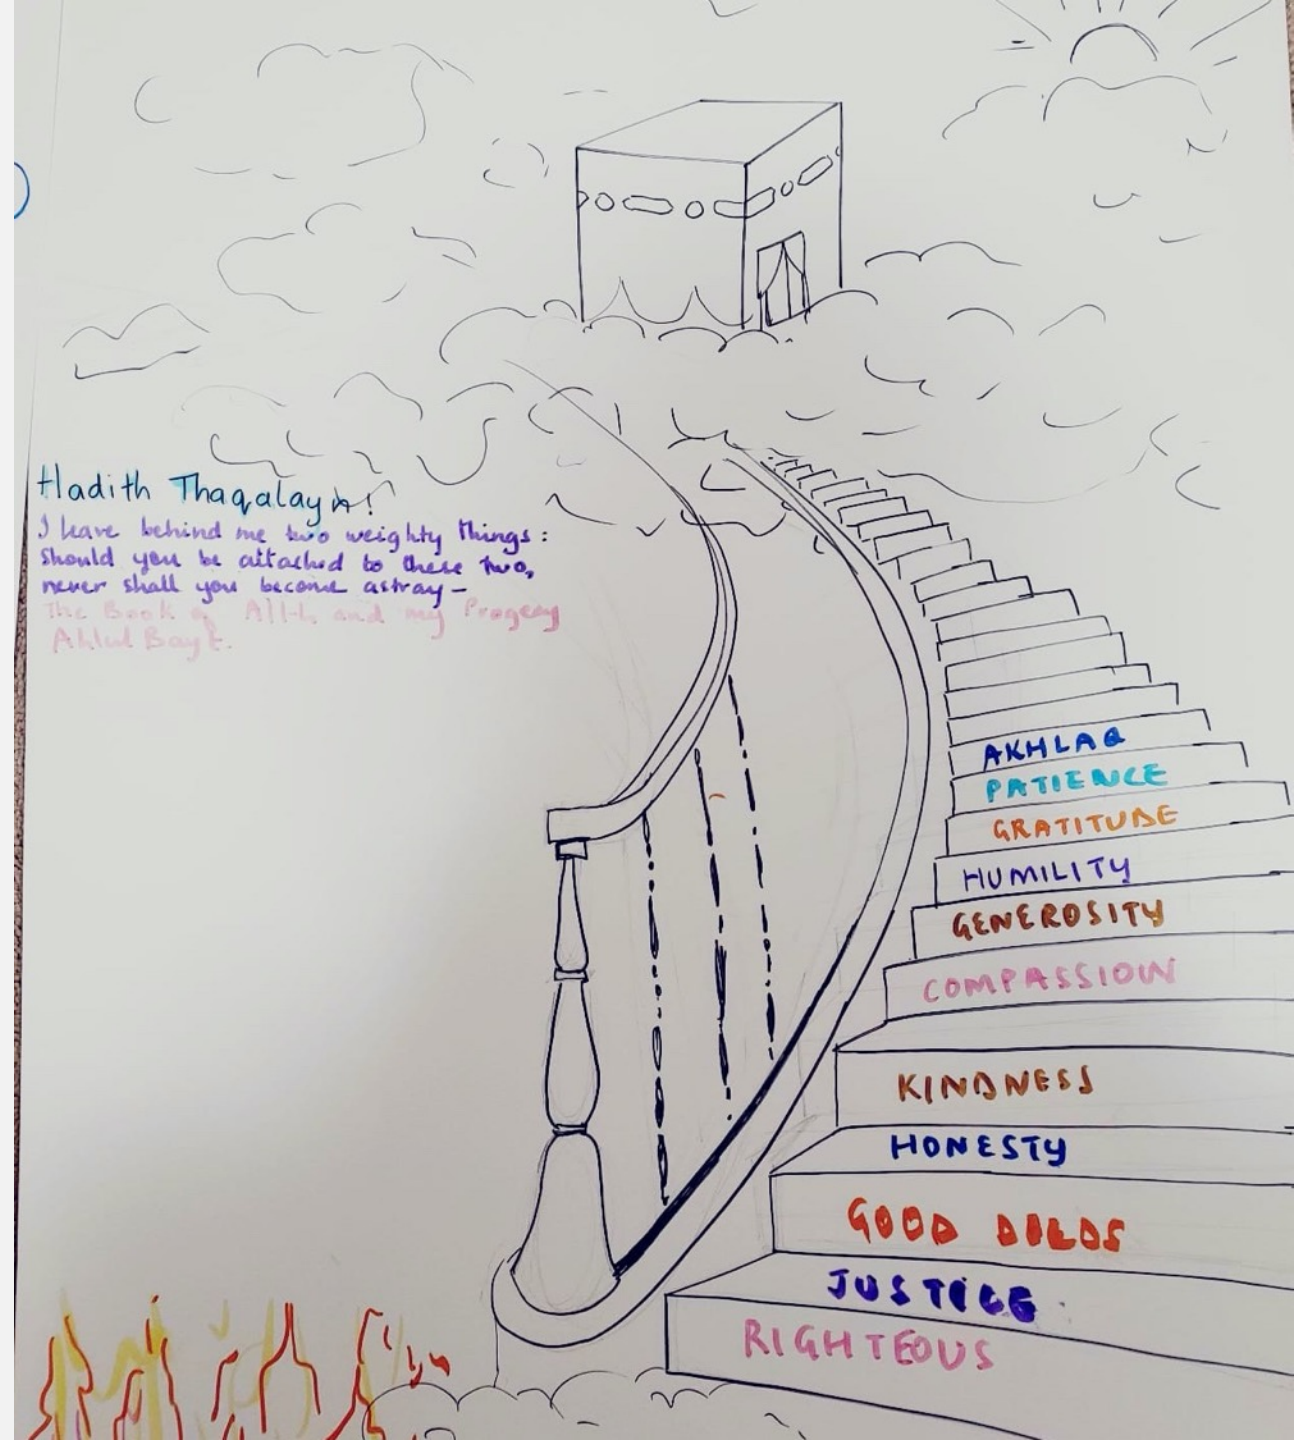 Hadith Thaqalayn!
I leave behind me two weighty things:
Should you be attached to these two,
never shall you become astray-
The Book of Allah and my Progeny
Ahlul Bayt.
AKHLAQ
PATIENCE
GRATITUDE
HUMILITY
GENEROSITY
COMPASSION
KINDNESS
HONESTY
GOOD DEEDS
JUSTICE
RIGHTEOUS